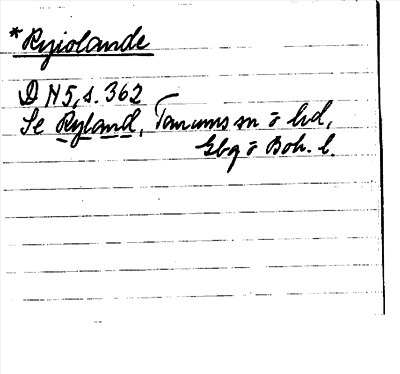 *Ryiolande
DN5, s. 362
Se Ryland, Tanums sn o hd,
Gbg o Boh. l.